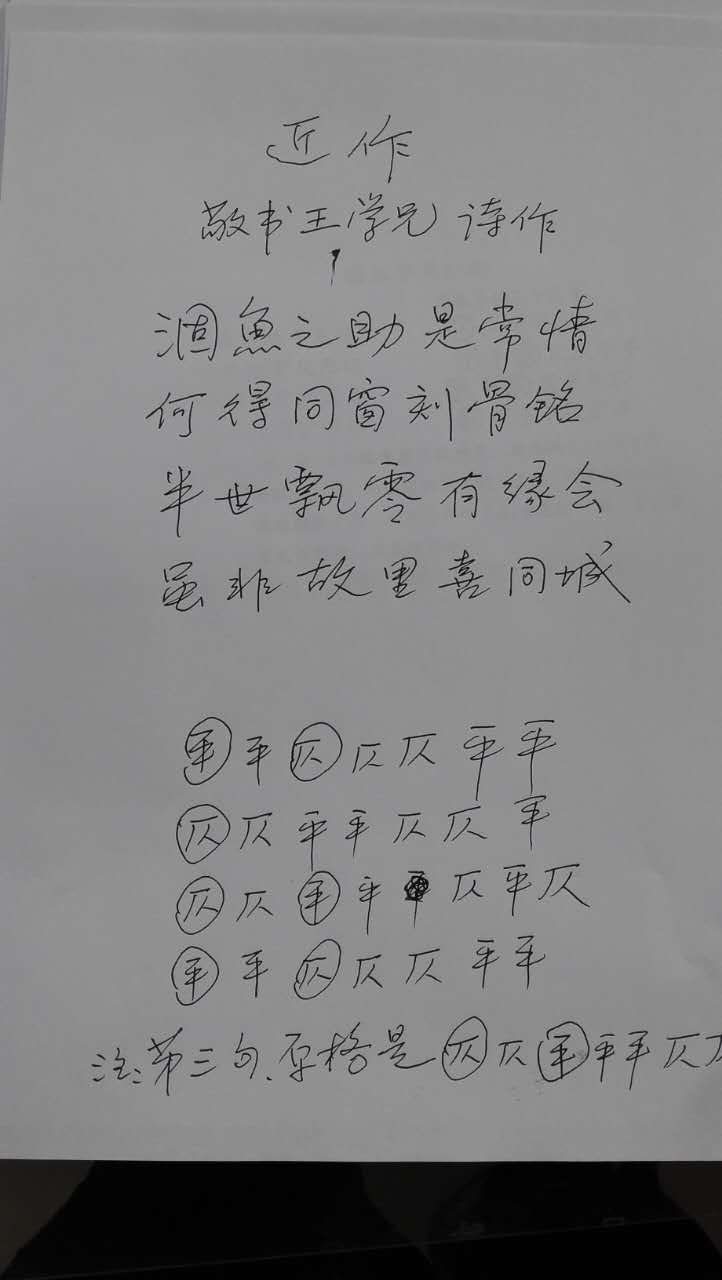 近作
敬书王学兄诗作
涸魚之助是常情
何得同窗刻骨铭
半世飘零有缘会
虽非故里喜同城
平平仄仄仄平平
仄仄平平仄仄平
仄仄平平平仄平仄
平平仄仄仄平平
注:第三句、原格是仄仄平平平仄仄